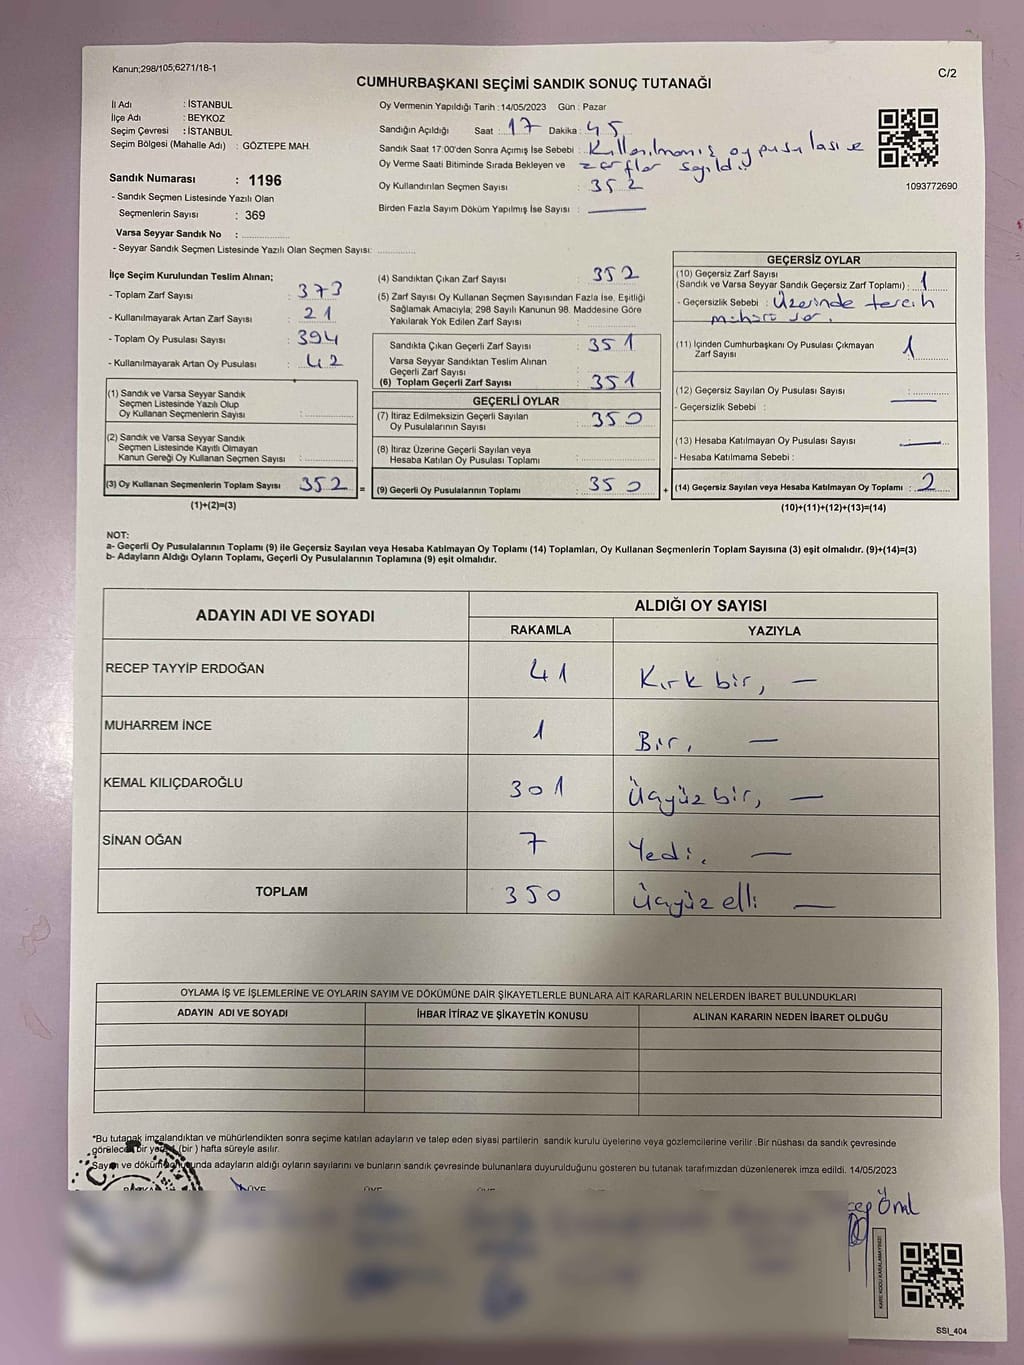 Kanun;298/105,6271/18-1
C/2
CUMHURBAŞKANI SEÇİMİ SANDIK SONUÇ TUTANAĞI
İl Adı : İSTANBUL
İlçe Adı : BEYKOZ
Seçim Çevresi : İSTANBUL
Seçim Bölgesi (Mahalle Adı) : GÖZTEPE MAH.
Sandık Numarası : 1196
- Sandık Seçmen Listesinde Yazılı Olan
Seçmenlerin Sayısı : 369
Varsa Seyyar Sandık No :
- Seyyar Sandık Seçmen Listesinde Yazılı Olan Seçmen Sayısı:
Oy Vermenin Yapıldığı Tarih : 14/05/2023 Gün : Pazar
Sandığın Açıldığı Saat : 17 Dakika : 45
Sandık Saat 17:00'den Sonra Açımış İse Sebebi : Kullanılmamış oy pusulası ve
Oy Verme Saati Bitiminde Sırada Bekleyen ve zarflar sayıldı.
Oy Kullandırılan Seçmen Sayısı : 352
Birden Fazla Sayım Döküm Yapılmış İse Sayısı :
1093772690
İlçe Seçim Kurulundan Teslim Alınan;
- Toplam Zarf Sayısı : 373
- Kullanılmayarak Artan Zarf Sayısı : 21
- Toplam Oy Pusulası Sayısı : 394
- Kullanılmayarak Artan Oy Pusulası : 42
(1) Sandık ve Varsa Seyyar Sandık
Seçmen Listesinde Yazılı Olup
Oy Kullanan Seçmenlerin Sayısı :
(2) Sandık ve Varsa Seyyar Sandık
Seçmen Listesinde Kayıtlı Olmayan
Kanun Gereği Oy Kullanan Seçmen Sayısı :
(3) Oy Kullanan Seçmenlerin Toplam Sayısı 352 =
(1)+(2)=(3)
(4) Sandıktan Çıkan Zarf Sayısı : 352
(5) Zarf Sayısı Oy Kullanan Seçmen Sayısından Fazla İse, Eşitliği
Sağlamak Amacıyla; 298 Sayılı Kanunun 98. Maddesine Göre
Yakılarak Yok Edilen Zarf Sayısı :
Sandıkta Çıkan Geçerli Zarf Sayısı : 351
Varsa Seyyar Sandıktan Teslim Alınan
Geçerli Zarf Sayısı :
(6) Toplam Geçerli Zarf Sayısı : 351
GEÇERLİ OYLAR
(7) İtiraz Edilmeksizin Geçerli Sayılan
Oy Pusulalarının Sayısı : 350
(8) İtiraz Üzerine Geçerli Sayılan veya
Hesaba Katılan Oy Pusulası Toplamı :
(9) Geçerli Oy Pusulalarının Toplamı : 350 +
GEÇERSİZ OYLAR
(10) Geçersiz Zarf Sayısı
(Sandık ve Varsa Seyyar Sandık Geçersiz Zarf Toplamı) : 1
- Geçersizlik Sebebi : Üzerinde tercih
mührü var.
(11) İçinden Cumhurbaşkanı Oy Pusulası Çıkmayan
Zarf Sayısı 1
(12) Geçersiz Sayılan Oy Pusulası Sayısı :
- Geçersizlik Sebebi :
(13) Hesaba Katılmayan Oy Pusulası Sayısı :
- Hesaba Katılmama Sebebi :
(14) Geçersiz Sayılan veya Hesaba Katılmayan Oy Toplamı : 2
(10)+(11)+(12)+(13)=(14)
NOT:
a- Geçerli Oy Pusulalarının Toplamı (9) ile Geçersiz Sayılan veya Hesaba Katılmayan Oy Toplamı (14) Toplamları, Oy Kullanan Seçmenlerin Toplam Sayısına (3) eşit olmalıdır. (9)+(14)=(3)
b- Adayların Aldığı Oyların Toplamı, Geçerli Oy Pusulalarının Toplamına (9) eşit olmalıdır.
ADAYIN ADI VE SOYADI ALDIĞI OY SAYISI
RAKAMLA YAZIYLA
RECEP TAYYİP ERDOĞAN 41 Kırk bir, —
MUHARREM İNCE 1 Bir, —
KEMAL KILIÇDAROĞLU 301 Üçyüz bir, —
SİNAN OĞAN 7 Yedi. —
TOPLAM 350 Üçyüz elli —
OYLAMA İŞ VE İŞLEMLERİNE VE OYLARIN SAYIM VE DÖKÜMÜNE DAİR ŞİKAYETLERLE BUNLARA AİT KARARLARIN NELERDEN İBARET BULUNDUKLARI
ADAYIN ADI VE SOYADI İHBAR İTİRAZ VE ŞİKAYETİN KONUSU ALINAN KARARIN NEDEN İBARET OLDUĞU
*Bu tutanak imzalandıktan ve mühürlendikten sonra seçime katılan adayların ve talep eden siyasi partilerin sandık kurulu üyelerine veya gözlemcilerine verilir .Bir nüshası da sandık çevresinde
görülecek bir yere (bir ) hafta süreyle asılır.
Sayım ve döküm sonunda adayların aldığı oyların sayılarını ve bunların sandık çevresinde bulunanlara duyurulduğunu gösteren bu tutanak tarafımızdan düzenlenerek imza edildi. 14/05/2023
ÜYE
Önal
KARE KODU KARALAMAYINIZ!
SSI_404